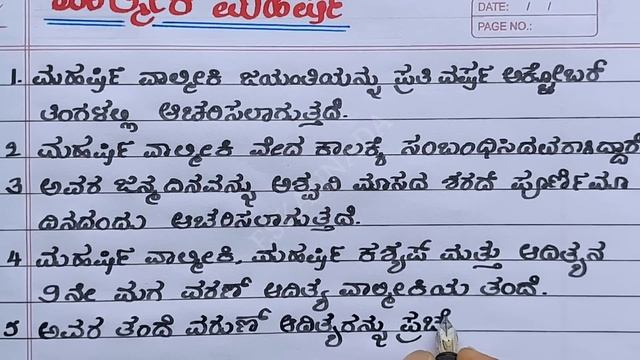 ವಾಲ್ಮೀಕಿ ಮಹರ್ಷಿ
DATE: / /
PAGE NO.:
1. ಮಹರ್ಷಿ ವಾಲ್ಮೀಕಿ ಜಯಂತಿಯನ್ನು ಪ್ರತಿ ವರ್ಷ ಅಕ್ಟೋಬರ್
ತಿಂಗಳಲ್ಲಿ ಆಚರಿಸಲಾಗುತ್ತದೆ.
2 ಮಹರ್ಷಿ ವಾಲ್ಮೀಕಿ ವೇದ ಕಾಲಕ್ಕೆ ಸಂಬಂಧಿಸಿದವರಾಗಿದ್ದಾರೆ
3 ಅವರ ಜನ್ಮದಿನವನ್ನು ಅಶ್ವಿನಿ ಮಾಸದ ಶರದ್ ಪೂರ್ಣಿಮಾ
ದಿನದಂದು ಆಚರಿಸಲಾಗುತ್ತದೆ.
4 ಮಹರ್ಷಿ ವಾಲ್ಮೀಕಿ, ಮಹರ್ಷಿ ಕಶ್ಯಪ್ ಮತ್ತು ಆದಿತ್ಯನ
9ನೇ ಮಗ ವರುಣ್ ಆದಿತ್ಯ ವಾಲ್ಮೀಕಿಯ ತಂದೆ.
5 ಅವರ ತಂದೆ ವರುಣ್ ಆದಿತ್ಯರನ್ನು ಪ್ರಚೆ